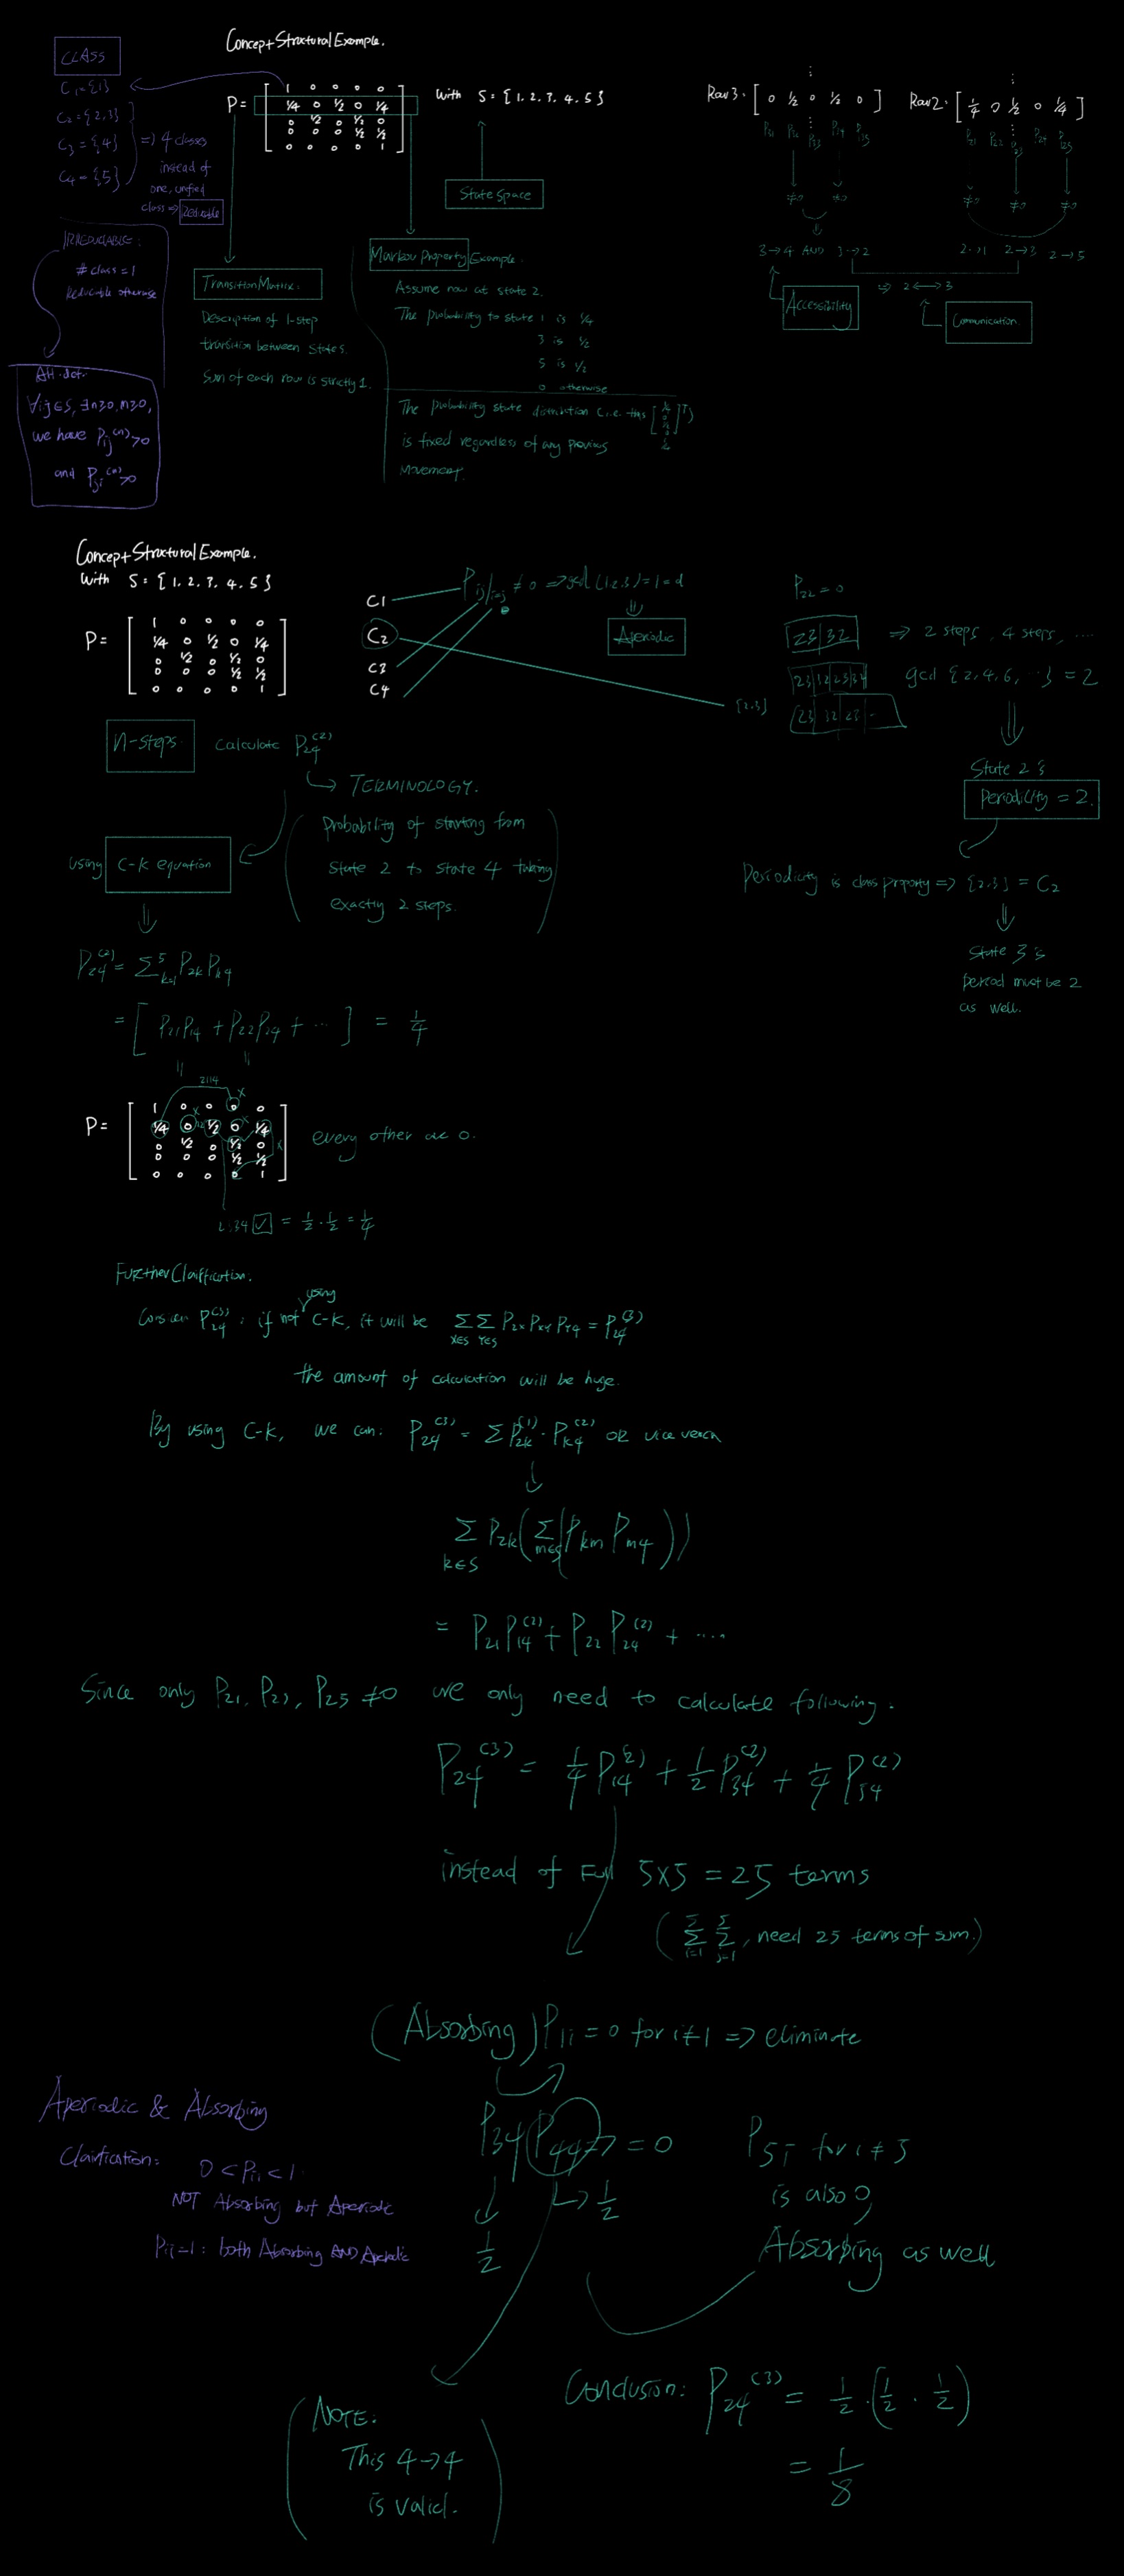 Concept Structural Example.
CLASS
C₁={1}
C₂={2,3}
C₃={4}
C₄={5}
=> 4 classes
instead of
one, unified
class => Reducable
IRREDUCIABLE:
# class = 1
Reducable otherwise
Alt. def.
∀i,j∈S, ∃n≥0, m≥0,
we have Pij⁽ⁿ⁾>0
and Pji⁽ᵐ⁾>0
P= [ 1 0 0 0 0
¼ 0 ½ 0 ¼
0 ½ 0 ½ 0
0 0 0 ½ ½
0 0 0 0 1 ]
With S = { 1, 2, 3, 4, 5 }
State Space
Transition Matrix:
Description of 1-step
transition between states.
Sum of each row is strictly 1.
Markov Property Example.
Assume now at state 2.
The probability to state 1 is ¼
3 is ½
5 is ½
0 otherwise
The probability state distribution (i.e. this [ ]ᵀ)
is fixed regardless of any previous
movement.
Row 3: [ 0 ½ 0 ½ 0 ]
≠0 ≠0
3→4 AND 3→2
Accessibility
Row 2: [ ¼ 0 ½ 0 ¼ ]
P21 P22 P23 P24 P25
≠0 ≠0 ≠0
2→1 2→3 2→5
=> 2←→3
Communication
Concept Structural Example.
With S = { 1, 2, 3, 4, 5 }
P= [ 1 0 0 0 0
¼ 0 ½ 0 ¼
0 ½ 0 ½ 0
0 0 0 ½ ½
0 0 0 0 1 ]
C1
C2
C3
C4
Pij|i=j ≠ 0 => gcd (1,2,3) = 1 = d
Aperiodic
{2,3}
P22 = 0
23|32 => 2 steps, 4 steps, ....
gcd {2,4,6,...} = 2
State 2 is
Periodicity = 2.
Periodicity is class property => {2,3} = C₂
State 3 is
period must be 2
as well.
n-steps. Calculate P24⁽²⁾
TERMINOLOGY.
Probability of starting from
state 2 to state 4 taking
exactly 2 steps.
using C-K equation
P24⁽²⁾ = Σ⁵k=1 P2k Pk4
= [ P21P14 + P22P24 + ... ] = 1/4
2114
P= [ 1 0 0 0 0
¼ 0 ½ 0 ¼
0 ½ 0 ½ 0
0 0 0 ½ ½
0 0 0 0 1 ]
every other are 0.
= 1/2 · 1/2 = 1/4
Further Clarification.
Consider P24⁽³⁾: if not using C-K, it will be Σx∈S Σy∈S P2x Pxy Py4 = P24⁽³⁾
the amount of calculation will be huge.
By using C-K, we can: P24⁽³⁾ = Σ P2k⁽¹⁾ · Pk4⁽²⁾ OR vice versa
Σk∈S P2k ( Σm∈S ( Pkm Pm4 ) )
= P21P14⁽²⁾ + P22 P24⁽²⁾ + ....
Since only P21, P23, P25 ≠0 we only need to calculate following:
P24⁽³⁾ = 1/4 P14⁽²⁾ + 1/2 P34⁽²⁾ + 1/4 P54⁽²⁾
instead of Full 5×5 = 25 terms
( Σ⁵i=1 Σ⁵j=1, need 25 terms of sum.)
(Absorbing) P1i = 0 for i≠1 => eliminate
Aperiodic & Absorbing
Clarification:
0 < Pii < 1.
NOT Absorbing but Aperiodic
Pii=1: both Absorbing AND Aperiodic
P34 P44 => = 0
1/2
1/2
P5i for i ≠ 5
is also 0,
Absorbing as well
(NOTE:
This 4→4
is valid.)
Conclusion: P24⁽³⁾ = 1/2 · (1/2 · 1/2)
= 1/8